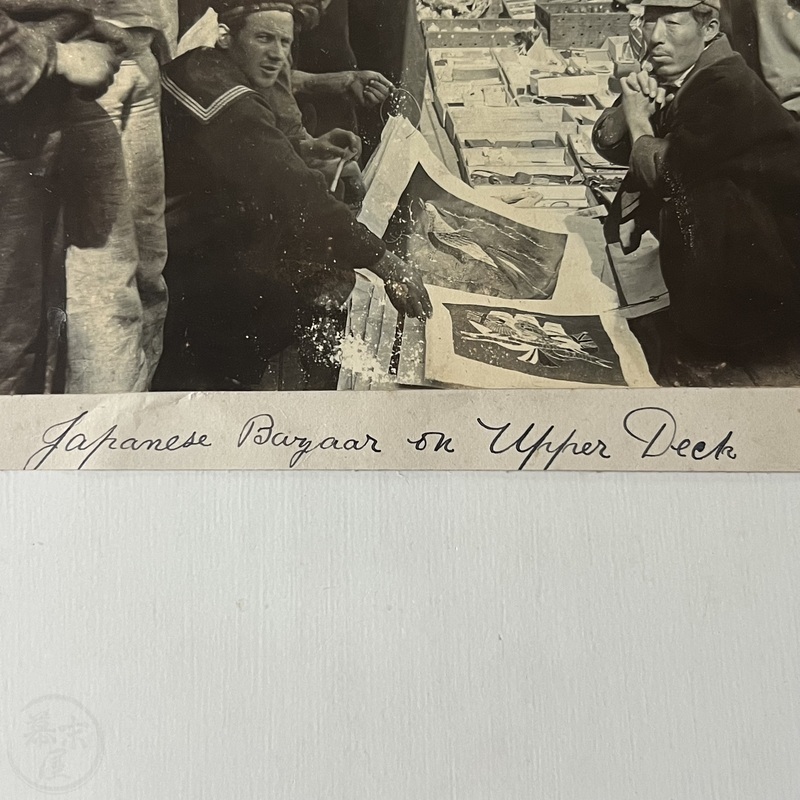 Japanese Bazaar on Upper Deck
幕末屋